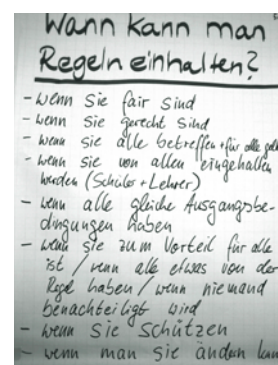 Wann kann man
Regeln einhalten?
- wenn sie fair sind
- wenn sie gerecht sind
- wenn sie alle betreffen + für alle
- wenn sie von allen eingehalten
werden (Schüler + Lehrer)
- wenn alle gleiche Ausgangsbe-
dingungen haben
- wenn sie zum Vorteil für alle
ist / wenn alle etwas von der
Regel haben / wenn niemand
benachteiligt wird
- wenn sie schützen
- wenn man sie ändern kann